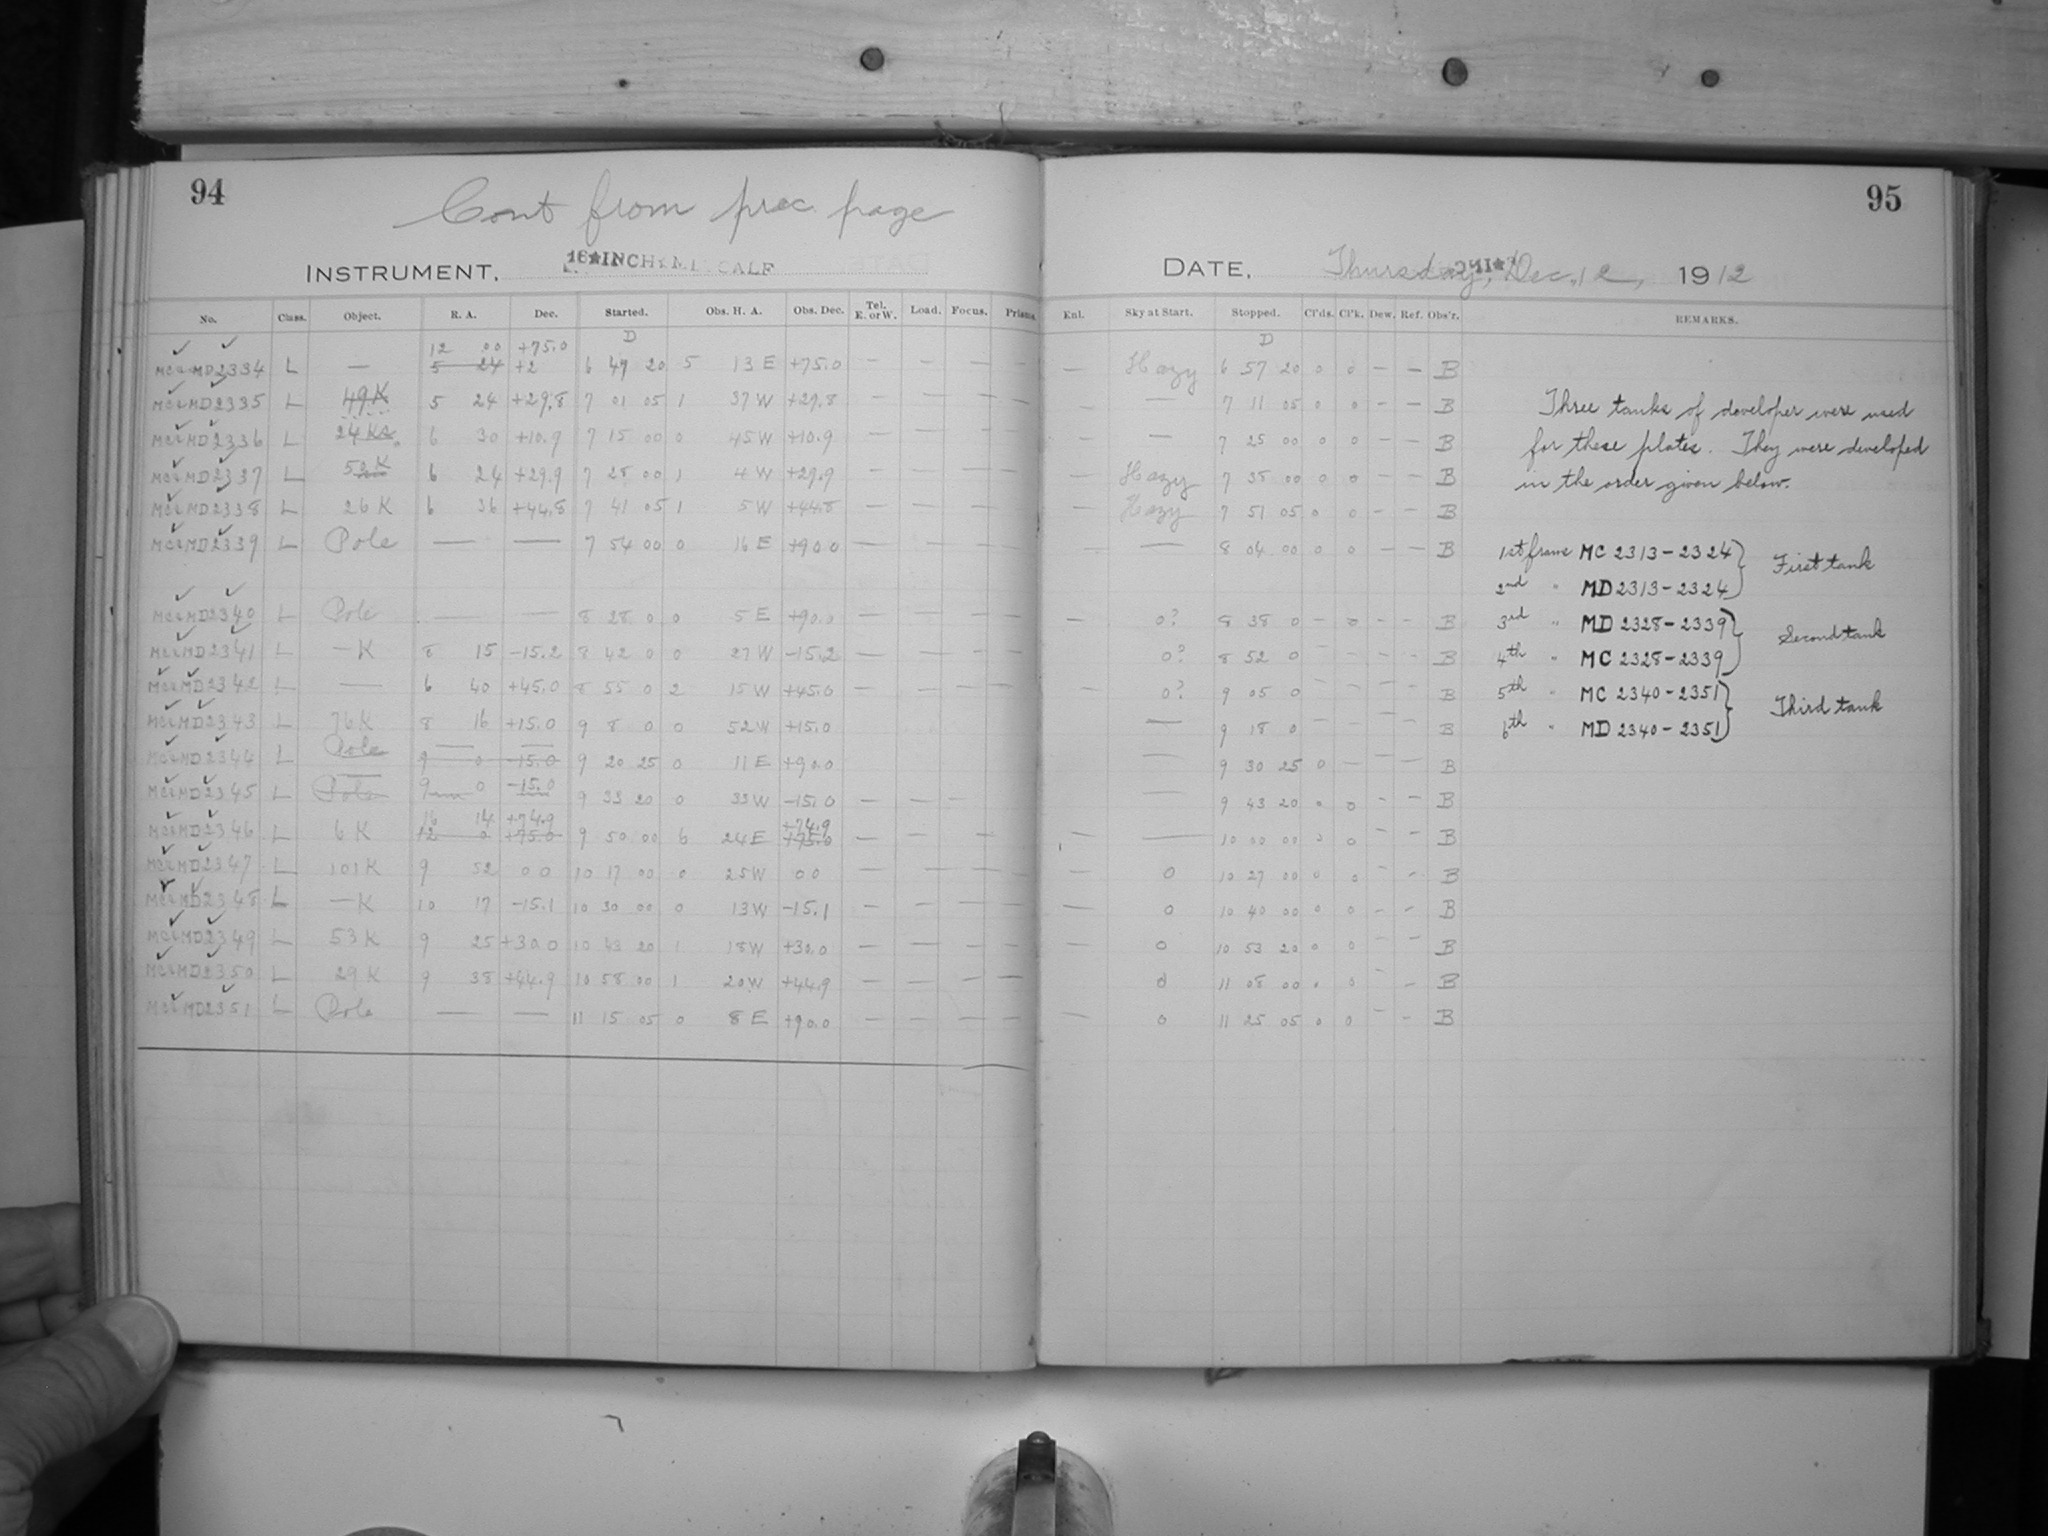 94
Cont from prec. page
INSTRUMENT, 16 INCH METCALF
No. Class. Object. R. A. Dec. Started. Obs. H. A. Obs. Dec. Tel. E. or W. Load. Focus. Prisms.
D
12 00 +75.0
MC&MD2334 L — 5 24 +2 6 47 20 5 13 E +75.0 — — — —
MC&MD2335 L 49K 5 24 +29.8 7 01 05 1 37 W +29.8 — — — —
MC&MD2336 L 24K 6 30 +10.9 7 15 00 0 45 W +10.9 — — — —
MC&MD2337 L 52K 6 24 +29.9 7 25 00 1 4 W +29.9 — — — —
MC&MD2338 L 26K 6 36 +44.8 7 41 05 1 5 W +44.8 — — — —
MC&MD2339 L Pole — — 7 54 00 0 16 E +90.0 — — — —
MC&MD2340 L Pole — — 8 28 0 0 5 E +90.0 — — — —
MC&MD2341 L — K 8 15 −15.2 8 42 0 0 27 W −15.2 — — — —
MC&MD2342 L — 6 40 +45.0 8 55 0 2 15 W +45.0 — — — —
MC&MD2343 L 76K 8 16 +15.0 9 8 0 0 52 W +15.0 — — — —
MC&MD2344 L Pole 9 0 −15.0 9 20 25 0 11 E +90.0
MC&MD2345 L Pole 9 0 −15.0 9 33 20 0 33 W −15.0 — — —
16 14 +74.9 +74.9
MC&MD2346 L 6K 12 0 +75.0 9 50 00 6 24 E +75.0 — — — —
MC&MD2347 L 101K 9 52 0 0 10 17 00 0 25 W 0 0 — — — —
MC&MD2348 L — K 10 17 −15.1 10 30 00 0 13 W −15.1 — — — —
MC&MD2349 L 53K 9 25 +30.0 10 43 20 1 18 W +30.0 — — — —
MC&MD2350 L 29K 9 38 +44.9 10 58 00 1 20 W +44.9 — — — —
MC&MD2351 L Pole — — 11 15 05 0 8 E +90.0 — — — —
95
DATE, Thursday, Dec. 12, 1912
Enl. Sky at Start. Stopped. Cl'ds. Cl'k. Dew. Ref. Obs'r. REMARKS.
D
— Hazy 6 57 20 0 0 — — B
— — 7 11 05 0 0 — — B
— — 7 25 00 0 0 — — B
— Hazy 7 35 00 0 0 — — B
Hazy 7 51 05 0 0 — — B
— 8 04 00 0 0 — — B
— 0? 8 38 0 — 0 — — B
0? 8 52 0 — — — — B
— 0? 9 05 0 — — — — B
— 9 18 0 — — — — B
— 9 30 25 0 — — — B
— 9 43 20 0 0 — — B
— — 10 00 00 0 0 — — B
— 0 10 27 00 0 0 — — B
— 0 10 40 00 0 0 — — B
— 0 10 53 20 0 0 — — B
0 11 08 00 0 0 — — B
— 0 11 25 05 0 0 — — B
Three tanks of developer were used
for these plates. They were developed
in the order given below.
1st frame MC 2313-2324 } First tank
2nd " MD 2313-2324
3rd " MD 2328-2339 } Second tank
4th " MC 2328-2339
5th " MC 2340-2351 } Third tank
6th " MD 2340-2351